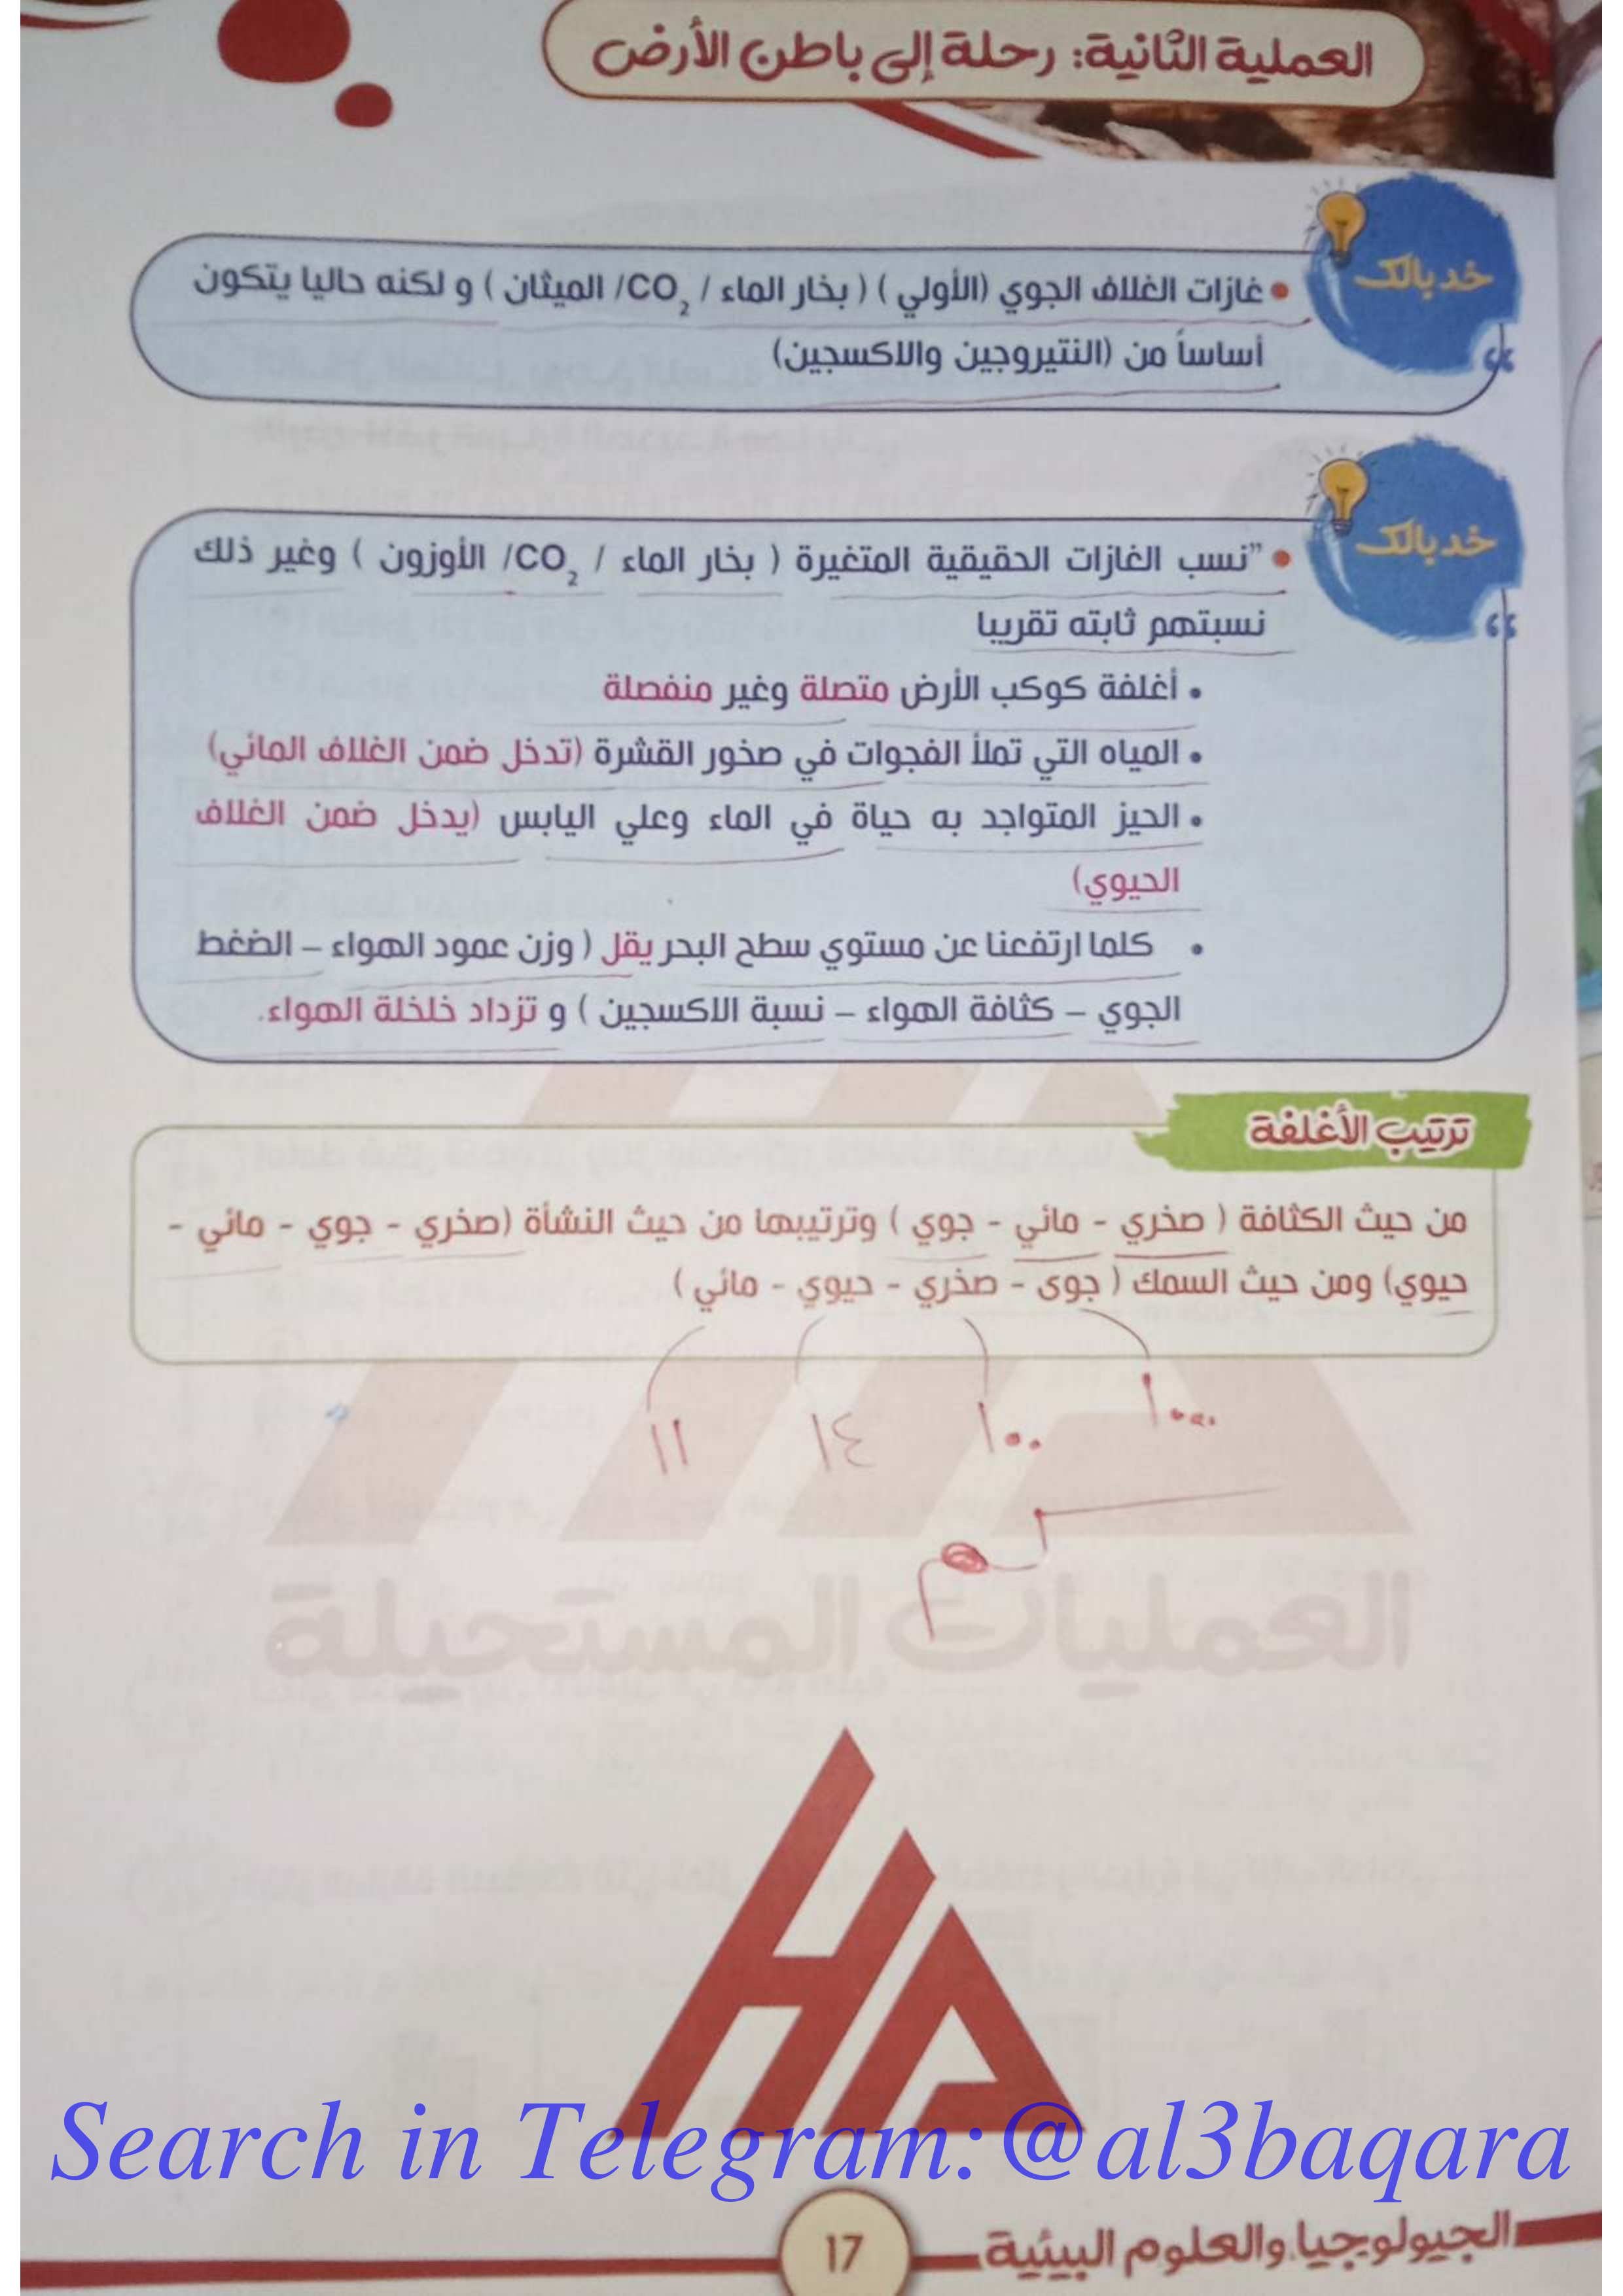 العملية الثانية: رحلة إلى باطن الأرض
خد بالك
• غازات الغلاف الجوي (الأولي ) ( بخار الماء / CO₂/ الميثان ) و لكنه حاليا يتكون
أساساً من (النتيروجين والاكسجين)
خد بالك
• "نسب الغازات الحقيقية المتغيرة ( بخار الماء / CO₂/ الأوزون ) وغير ذلك
نسبتهم ثابته تقريبا
• أغلفة كوكب الأرض متصلة وغير منفصلة
• المياه التي تملأ الفجوات في صخور القشرة (تدخل ضمن الغلاف المائي)
• الحيز المتواجد به حياة في الماء وعلي اليابس (يدخل ضمن الغلاف
الحيوي)
• كلما ارتفعنا عن مستوي سطح البحر يقل ( وزن عمود الهواء – الضغط
الجوي – كثافة الهواء – نسبة الاكسجين ) و تزداد خلخلة الهواء.
ترتيب الأغلفة
من حيث الكثافة ( صخري - مائي - جوي ) وترتيبها من حيث النشأة (صخري - جوي - مائي -
حيوي) ومن حيث السمك ( جوى - صخري - حيوي - مائي )
١٠٠٠ ١٠٠ ١٤ ١١
كم
العمليات المستحيلة
HA
Search in Telegram:@al3baqara
الجيولوجيا والعلوم البيئية
17